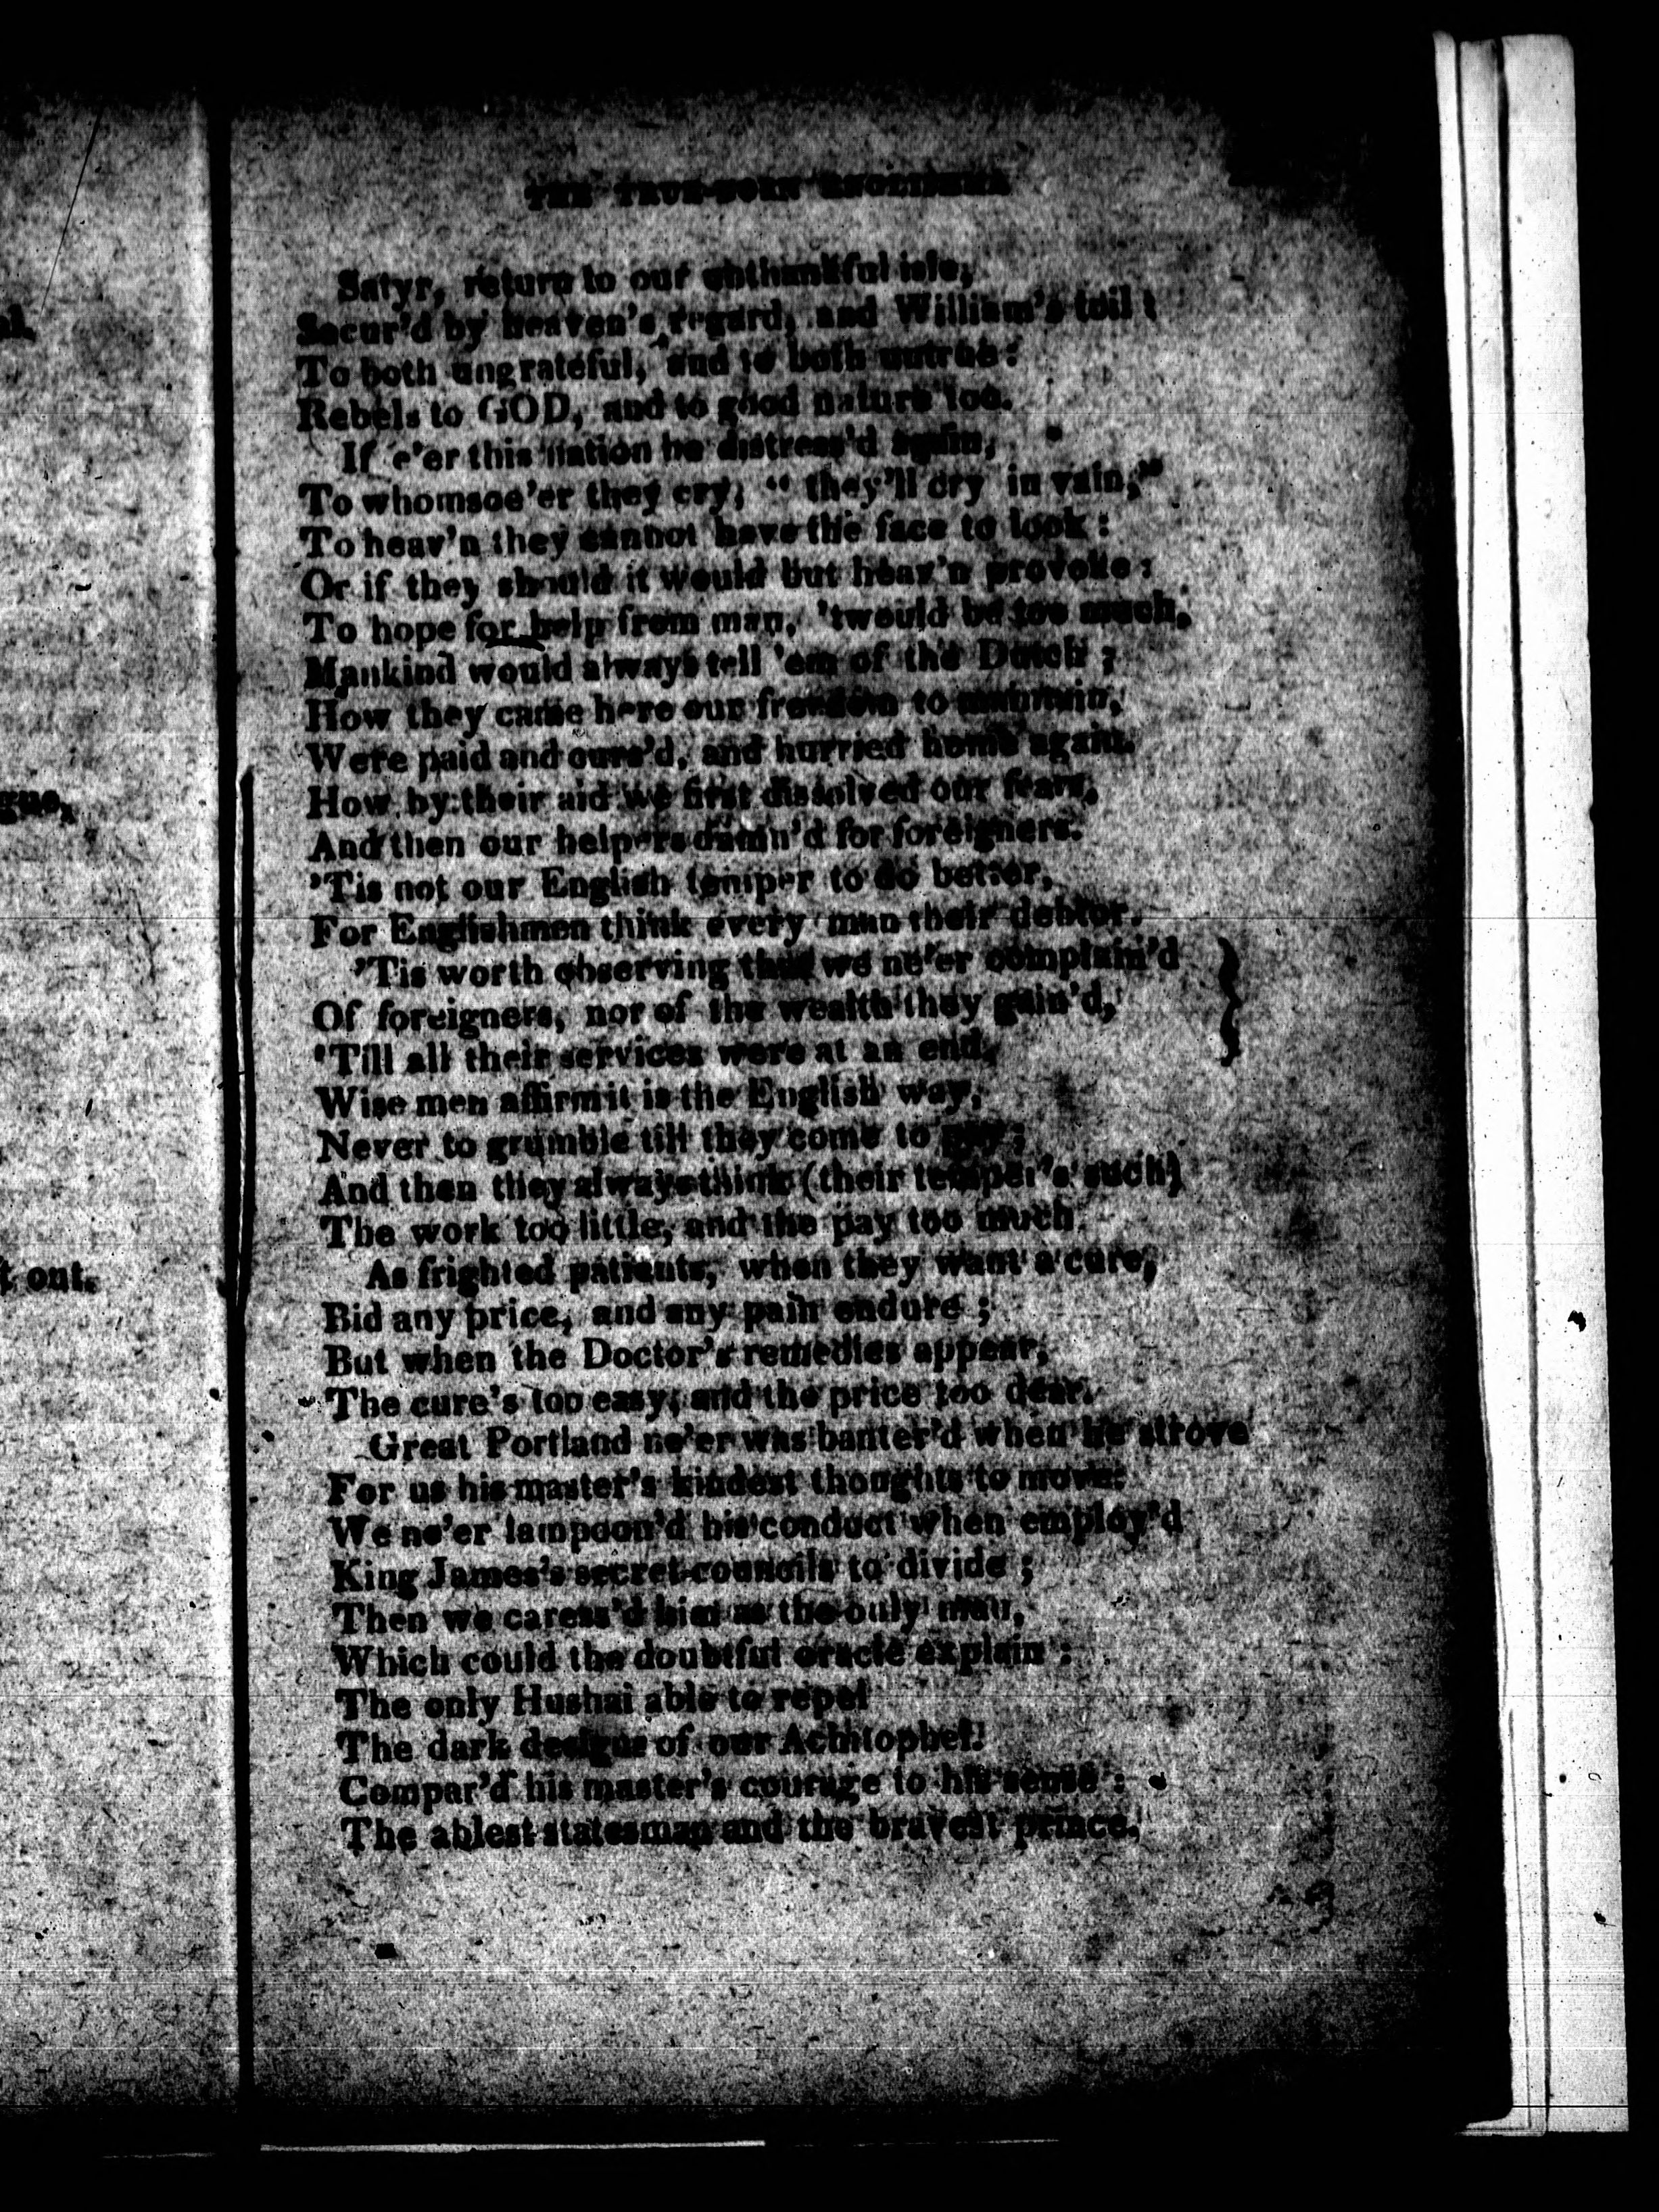 al.
gue,
t out.
THE TRUE-BORN ENGLISHMA
Satyr, return to our unthankful isle,
Secur'd by heaven's regard, and William's toil :
To both ungrateful, and to both untrue :
Rebels to GOD, and to good nature too.
If e'er this nation be distress'd again,
To whomsoe'er they cry, " they'll cry in vain,"
To heav'n they cannot have the face to look :
Or if they should it would but heav'n provoke :
To hope for help from man, 'twould be too much,
Mankind would always tell 'em of the Dutch ;
How they came here our freedom to maintain,
Were paid and curs'd, and hurried home again.
How by their aid we first dissolved our fears,
And then our helpers damn'd for foreigners.
'Tis not our English temper to do better,
For Englishmen think every man their debtor.
'Tis worth observing that we ne'er complain'd
Of foreigners, nor of the wealth they gain'd,
'Till all their services were at an end,
Wise men affirm it is the English way,
Never to grumble till they come to pay ;
And then they always think (their temper's such)
The work too little, and the pay too much.
As frighted patients, when they want a cure,
Bid any price, and any pain endure ;
But when the Doctor's remedies appear,
The cure's too easy, and the price too dear.
Great Portland ne'er was banter'd when he strove
For us his master's kindest thoughts to move:
We ne'er lampoon'd his conduct when employ'd
King James's secret councils to divide ;
Then we caress'd him as the only man,
Which could the doubtful oracle explain :
The only Hushai able to repel
The dark designs of our Achitophel!
Compar'd his master's courage to his sense :
The ablest statesman and the bravest prince.